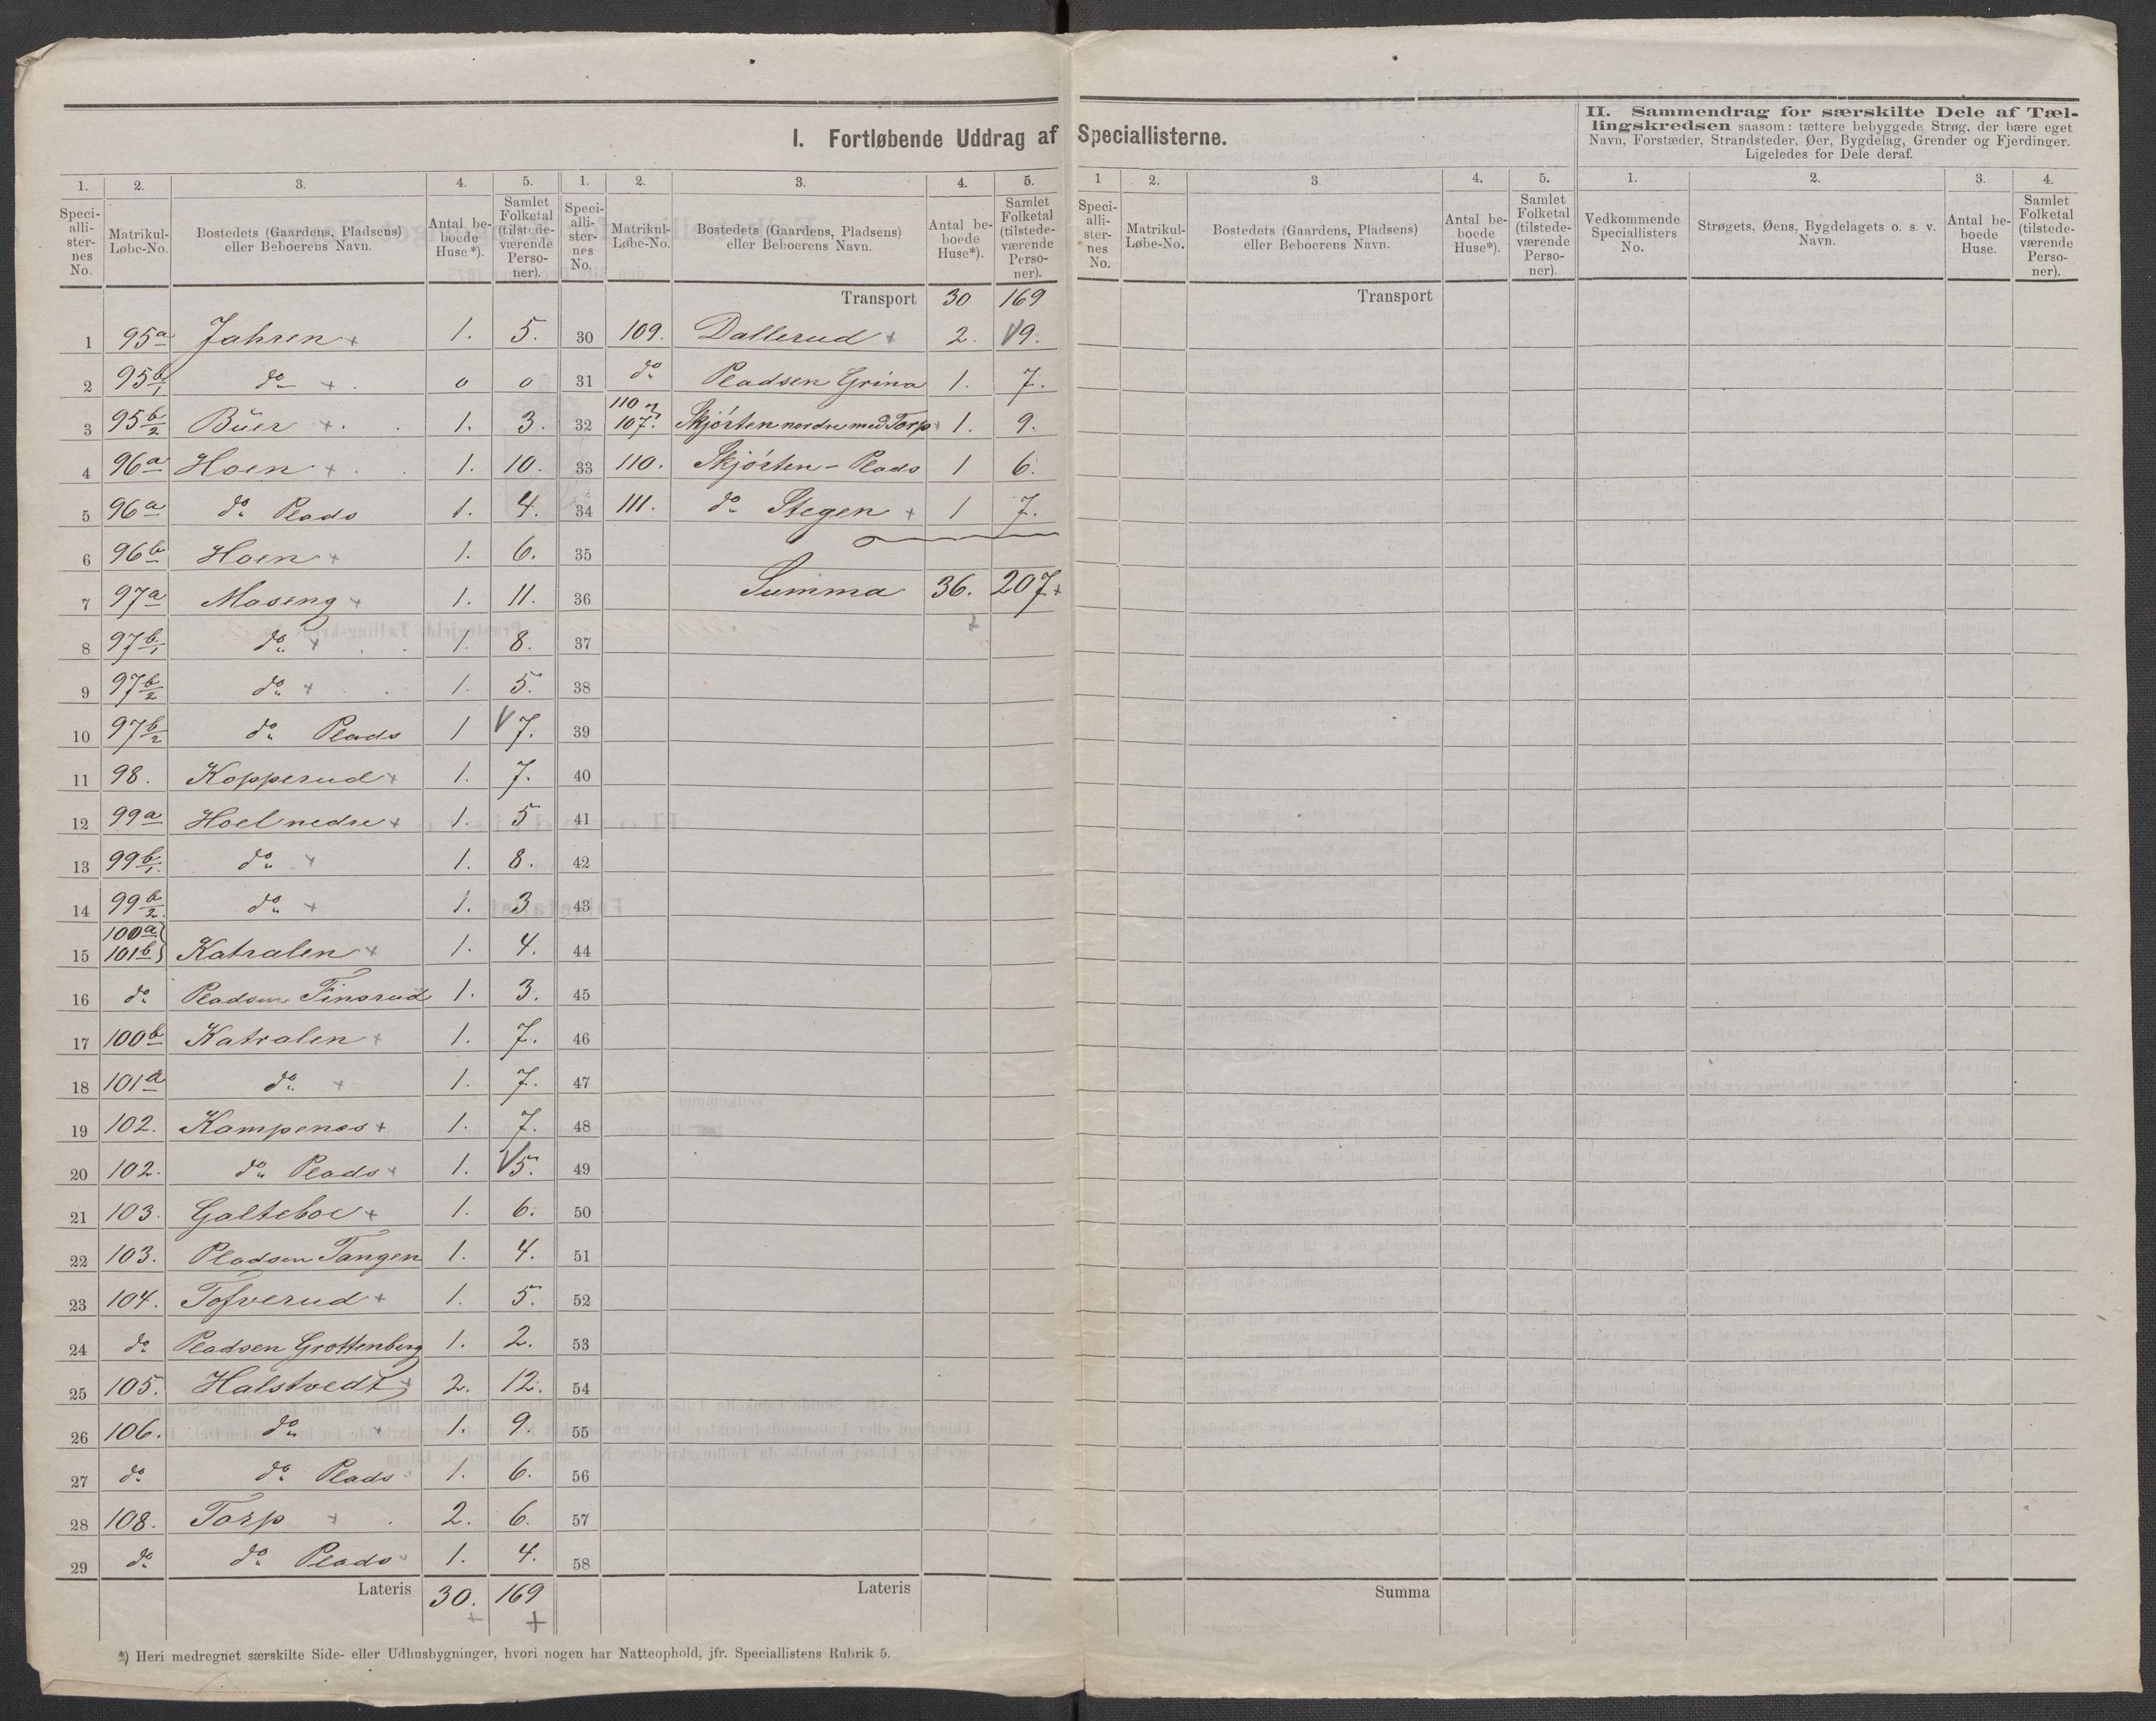 I. Fortløbende Uddrag af Speciallisterne.
II. Sammendrag for særskilte Dele af Tæl-
lingskredsen saasom: tættere bebyggede Strøg, der bære eget
Navn, Forstæder, Strandsteder, Øer, Bygdelag, Grender og Fjerdinger.
Ligeledes for Dele deraf.
1. 2. 3. 4. 5. 1. 2. 3. 4. 5. 1 2. 3. 4. 5. 1. 2. 3. 4.
Speci-alli-ster-nes No. Matrikul-Løbe-No. Bostedets (Gaardens, Pladsens) eller Beboerens Navn. Antal be-boede Huse*). Samlet Folketal (tilstede-værende Perso-ner).
Speci-alli-ster-nes No. Matrikul-Løbe-No. Bostedets (Gaardens, Pladsens) eller Beboerens Navn. Antal be-boede Huse*). Samlet Folketal (tilstede-værende Perso-ner).
Speci-alli-ster-nes No. Matrikul-Løbe-No. Bostedets (Gaardens, Pladsens) eller Beboerens Navn. Antal be-boede Huse*). Samlet Folketal (tilstede-værende Perso-ner).
Vedkommende Speciallisters No. Strøgets, Øens, Bygdelagets o. s. v. Navn. Antal be-boede Huse. Samlet Folketal (tilstede-værende Perso-ner).
1 95a Jahren + 1. 5.
2 95b/1 do + 0 0
3 95b/2 Büer + 1. 3.
4 96a Hoen + 1. 10.
5 96a do Plads 1. 4.
6 96b Hoen + 1. 6.
7 97a Moseng + 1. 11.
8 97b/1 do + 1. 8.
9 97b/2 do + 1. 5.
10 97b/2 do Plads 1 7.
11 98. Kopperud + 1. 7.
12 99a Hoel nedre + 1. 5
13 99b/1. do + 1. 8.
14 99b/2. do + 1. 3
15 100a 101b Katralen + 1. 4.
16 do Pladsen Finsrud 1. 3.
17 100b Katralen + 1. 7.
18 101a do + 1. 7.
19 102. Kampenes + 1. 7.
20 102. do Plads + 1. 5.
21 103. Galteboe + 1. 6.
22 103. Pladsen Tangen 1. 4.
23 104. Tofverud + 1. 5.
24 do Pladsen Grottenberg 1. 2.
25 105. Halstvedt + 2. 12.
26 106. do + 1. 9.
27 do do Plads 1. 6.
28 108. Torp + 2. 6.
29 do do Plads 1. 4.
Lateris 30. 169
+ +
Transport 30 169
30 109. Dallerud + 2. 9.
31 do Pladsen Grina 1. 7.
32 110 107. Skjörten nordre med Torp 1. 9.
33 110. Skjörten - Plads 1 6.
34 111. do Stegen + 1 7.
35
36 Summa 36. 207. +
+
37
38
39
40
41
42
43
44
45
46
47
48
49
50
51
52
53
54
55
56
57
58
Lateris
Transport
Summa
*) Heri medregnet særskilte Side- eller Udhusbygninger, hvori nogen har Natteophold, jfr. Speciallistens Rubrik 5.